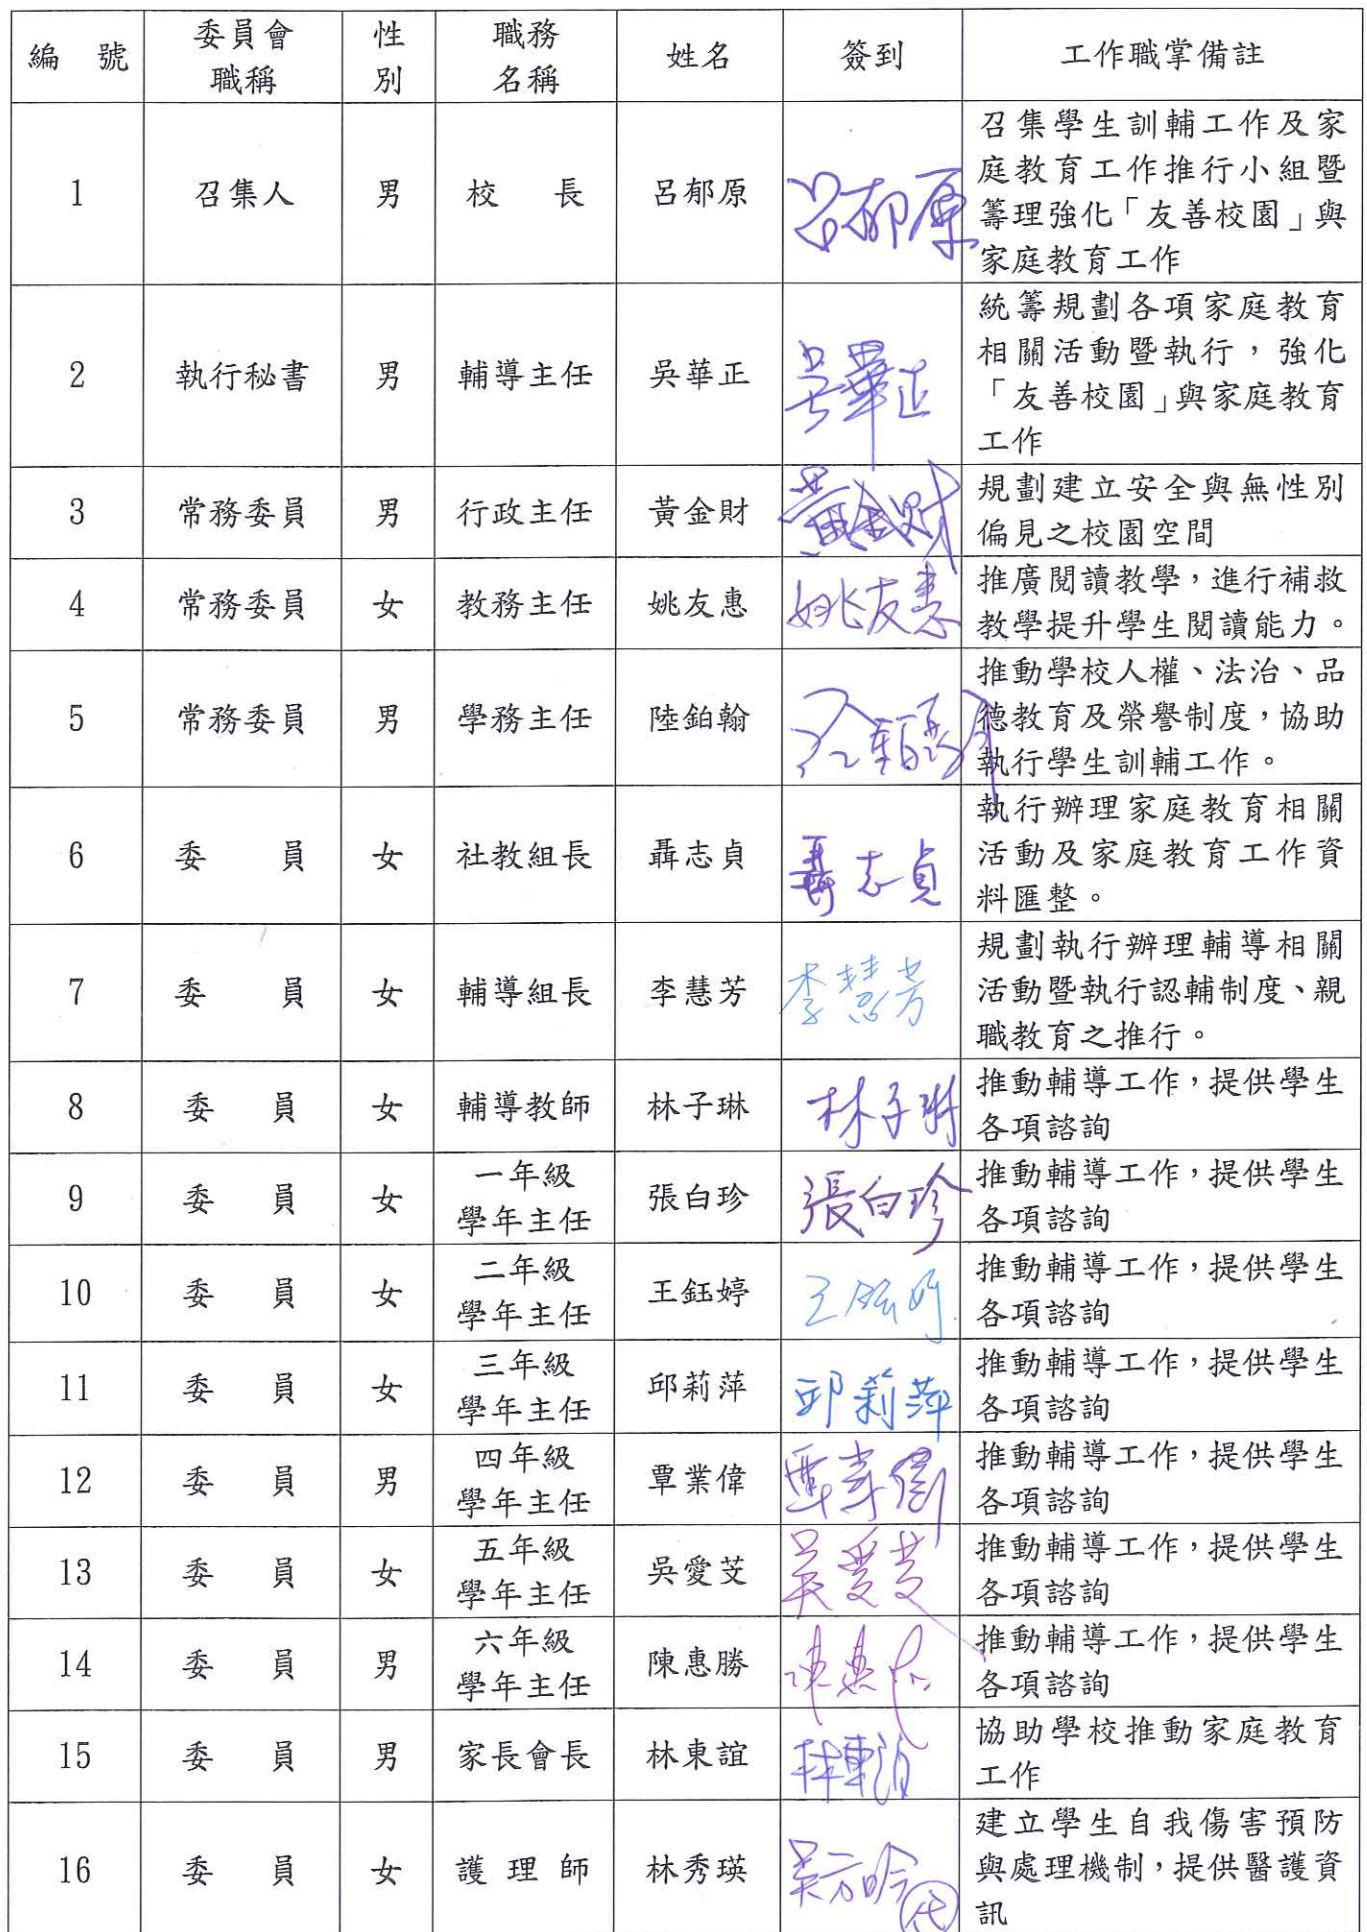 編 號 委員會職稱 性別 職務名稱 姓名 簽到 工作職掌備註
1 召集人 男 校 長 呂郁原 呂郁原 召集學生訓輔工作及家
庭教育工作推行小組暨
籌理強化「友善校園」與
家庭教育工作
2 執行秘書 男 輔導主任 吳華正 吳華正 統籌規劃各項家庭教育
相關活動暨執行，強化
「友善校園」與家庭教育
工作
3 常務委員 男 行政主任 黃金財 黃金財 規劃建立安全與無性別
偏見之校園空間
4 常務委員 女 教務主任 姚友惠 姚友惠 推廣閱讀教學，進行補救
教學提升學生閱讀能力。
5 常務委員 男 學務主任 陸鉑翰 推動學校人權、法治、品
德教育及榮譽制度，協助
執行學生訓輔工作。
6 委 員 女 社教組長 聶志貞 聶志貞 執行辦理家庭教育相關
活動及家庭教育工作資
料匯整。
7 委 員 女 輔導組長 李慧芳 李慧芳 規劃執行辦理輔導相關
活動暨執行認輔制度、親
職教育之推行。
8 委 員 女 輔導教師 林子琳 林子琳 推動輔導工作，提供學生
各項諮詢
9 委 員 女 一年級學年主任 張白珍 張白珍 推動輔導工作，提供學生
各項諮詢
10 委 員 女 二年級學年主任 王鈺婷 推動輔導工作，提供學生
各項諮詢
11 委 員 女 三年級學年主任 邱莉萍 邱莉萍 推動輔導工作，提供學生
各項諮詢
12 委 員 男 四年級學年主任 覃業偉 覃業偉 推動輔導工作，提供學生
各項諮詢
13 委 員 女 五年級學年主任 吳愛芠 吳愛芠 推動輔導工作，提供學生
各項諮詢
14 委 員 男 六年級學年主任 陳惠勝 推動輔導工作，提供學生
各項諮詢
15 委 員 男 家長會長 林東誼 林東誼 協助學校推動家庭教育
工作
16 委 員 女 護 理 師 林秀瑛 建立學生自我傷害預防
與處理機制，提供醫護資
訊